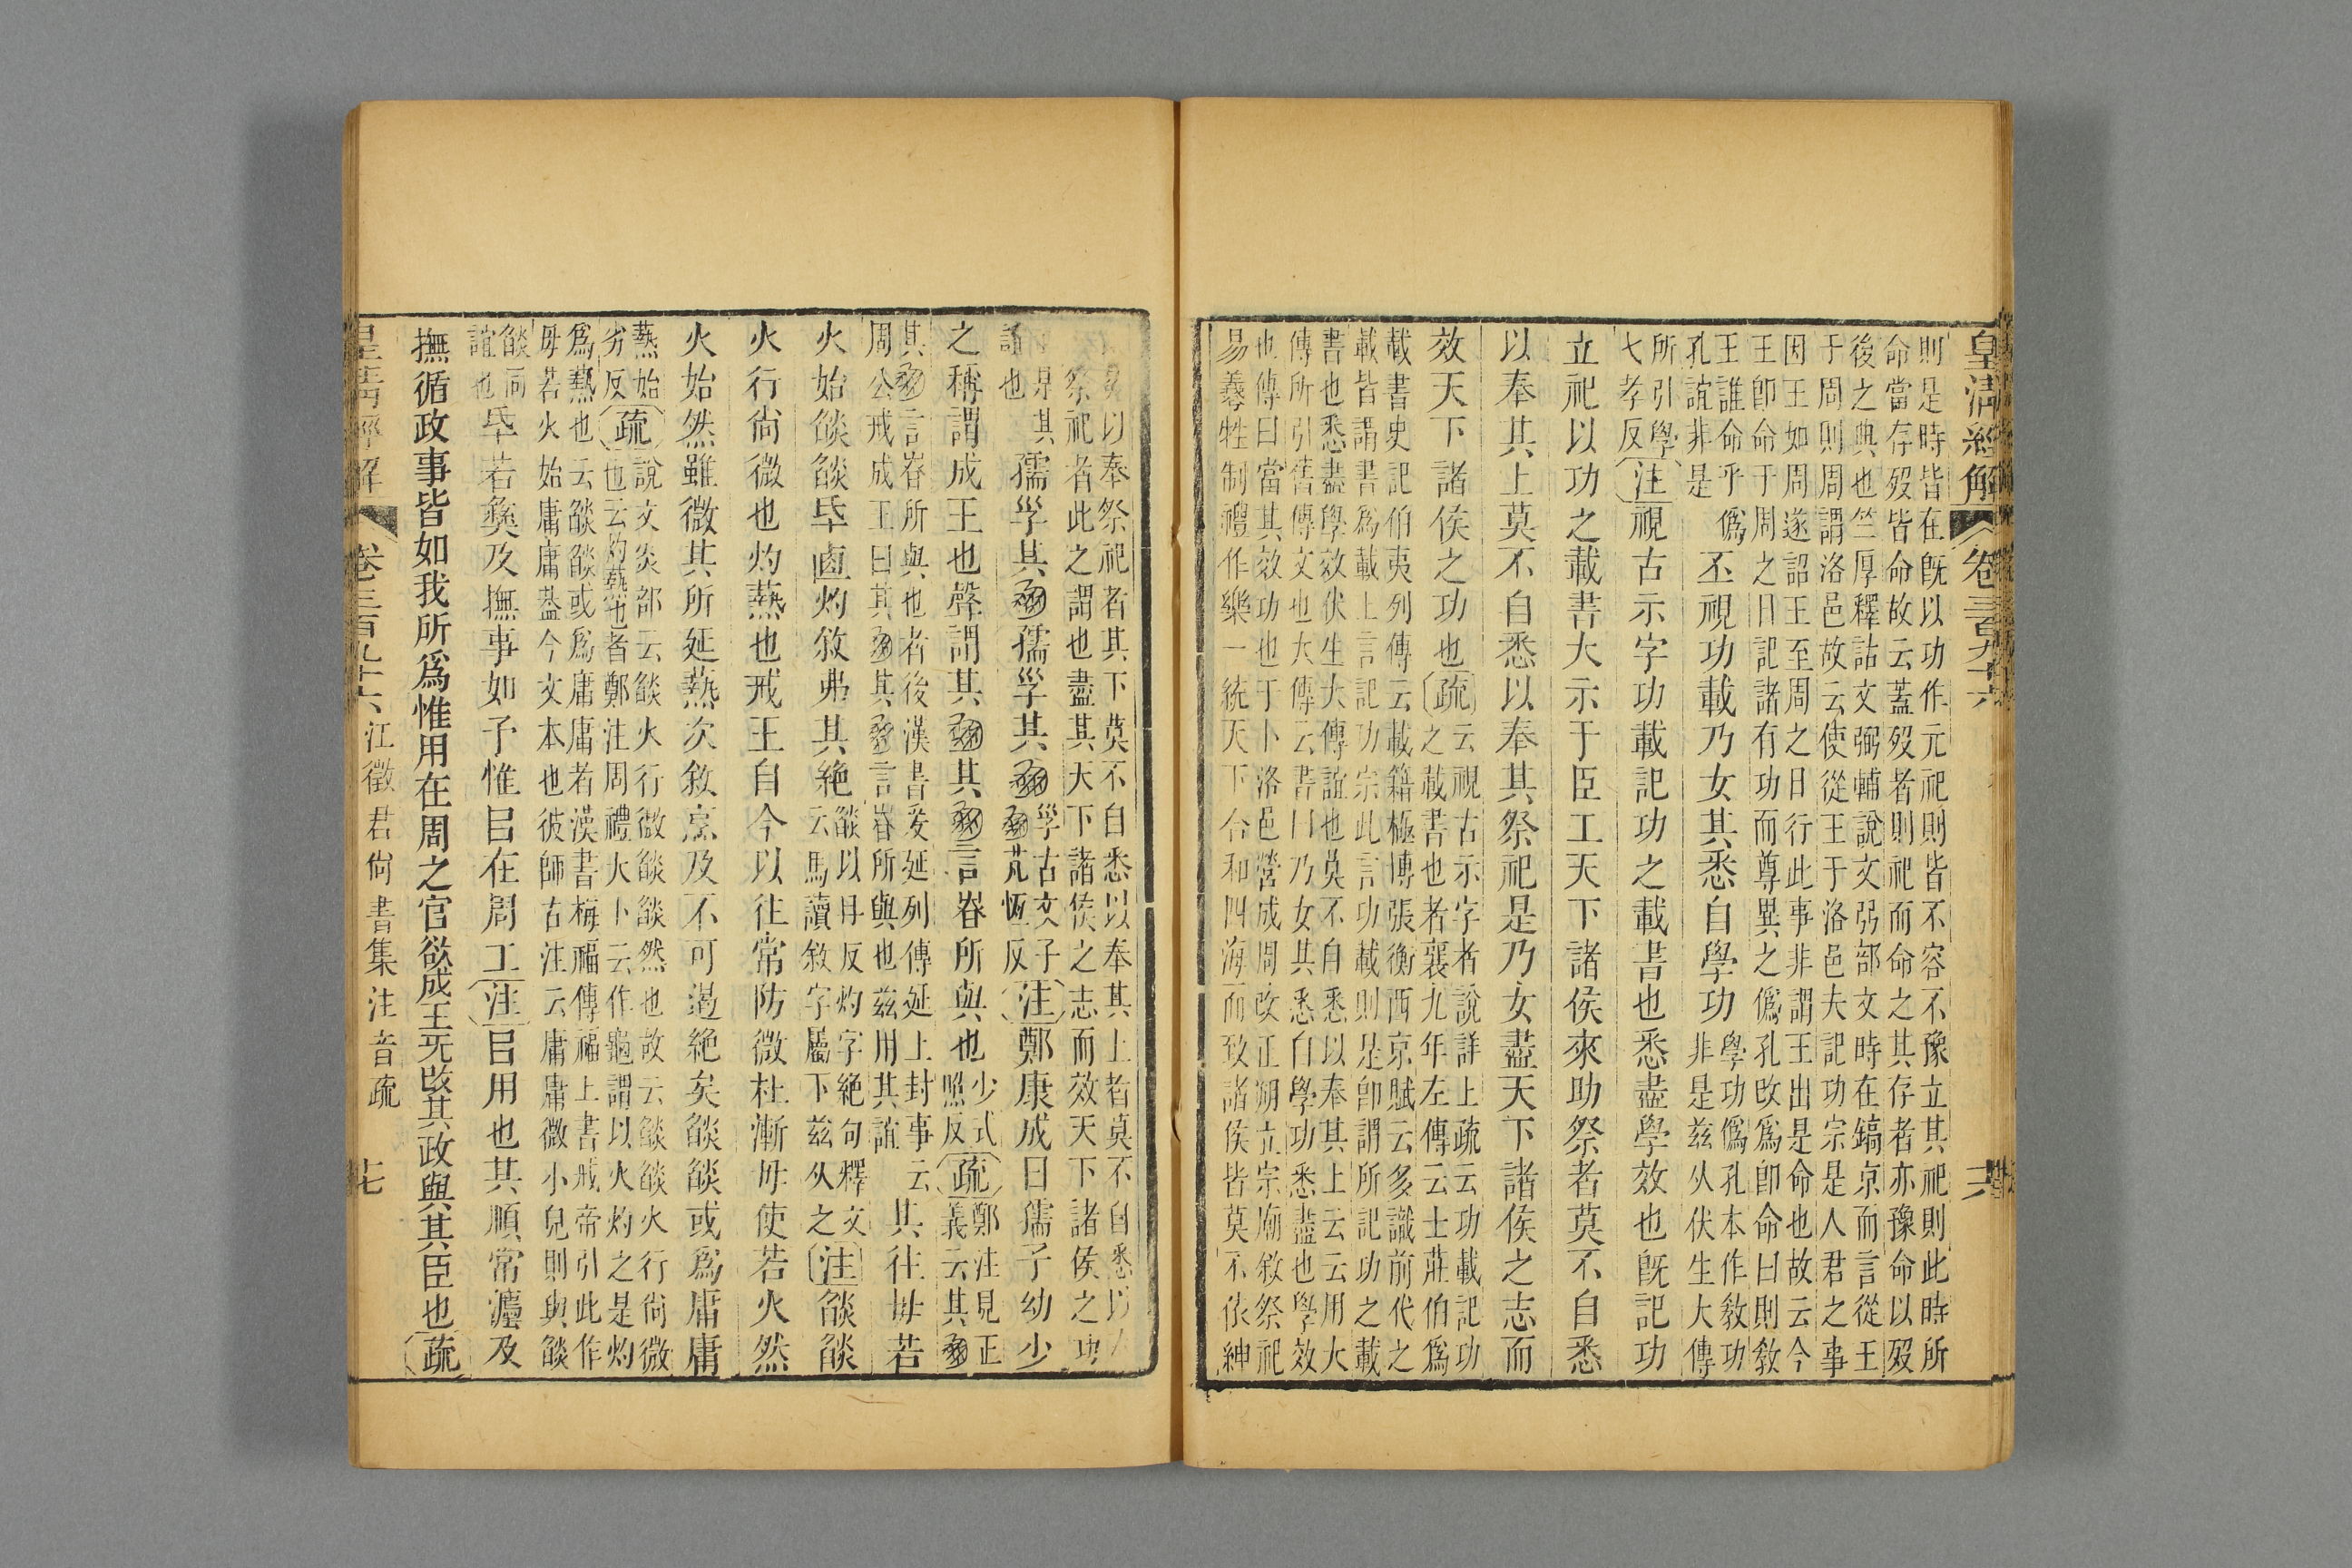 皇淸經解 卷三百九十六 六
則是時皆在旣以功作元祀則皆不容不豫立其祀則此時所
命當存歿皆命故云蓋歿者則祀而命之其存者亦豫命以歿
後之典也竺厚釋詁文弼輔說文弜部文時在鎬京而言從王
于周則周謂洛邑故云使從王于洛邑夫記功宗是人君之事
因王如周遂詔王至周之日行此事非謂王出是命也故云今
王卽命于周之日記諸有功而尊異之僞孔攺爲卽命曰則敎
王誰命乎僞
孔誼非是
丕視功載乃女其悉自學功
學功僞孔本作敎功
非是兹从伏生大傳
所引學
七孝反
注視古示字功載記功之載書也悉盡學效也旣記功
立祀以功之載書大示于臣工天下諸侯來助祭者莫不自悉
以奉其上莫不自悉以奉其祭祀是乃女盡天下諸侯之志而
效天下諸侯之功也疏
云視古示字者說詳上疏云功載記功
之載書也者襄九年左傳云士莊伯爲
載書史記伯夷列傳云載籍極博張衡西京賦云多識前代之
載皆謂書爲載上言記功宗此言功載則是卽謂所記功之載
書也悉盡學效伏生大傳誼也莫不自悉以奉其上云云用大
傳所引舊傳文也大傳云書曰乃女其悉自學功悉盡也學效
也傳曰當其效功也于卜洛邑營成周改正朔立宗廟敘祭祀
易犧牲制禮作樂一統天下合和四海而致諸侯皆莫不依紳
以奉祭祀者其下莫不自悉以奉其上者莫不自悉以
祭祀者此之謂也盡其天下諸侯之志而效天下諸侯之功
是其
誼也
孺孚其孺孚其
孚古文子
芃恆反
注鄭康成曰孺子幼少
之稱謂成王也聲謂其其言眘所與也
少式
照反
疏
鄭注見正
義云其
其言眘所與也者後漢書爰延列傳延上封事云
周公戒成王曰其其言眘所與也兹用其誼
其往毋若
火始燄燄氒鹵灼敘弗其絶
燄以冄反灼字絶句釋文
云馬讀敘字屬下兹从之
注燄燄
火行尙微也灼爇也戒王自今以往常防微杜漸毋使若火然
火始然雖微其所延爇次敘烹及不可遏絶矣燄燄或爲庸庸
爇始
劣反
疏
說文炎部云燄火行微燄燄然也故云燄燄火行尙微
也云灼爇也者鄭注周禮大卜云作龜謂以火灼之是灼
爲爇也云燄燄或爲庸庸若漢書梅福傳福上書戒帝引此作
毋若火始庸庸葢今文本也彼師古注云庸庸微小皃則與燄
燄同
誼也
氒若彝及撫事如予惟㠯在周工注㠯用也其順常灋及
撫循政事皆如我所爲惟用在周之官欲成王无改其政與其臣也疏
皇淸經解 卷三百九十六 江徵君尙書集注音疏 七